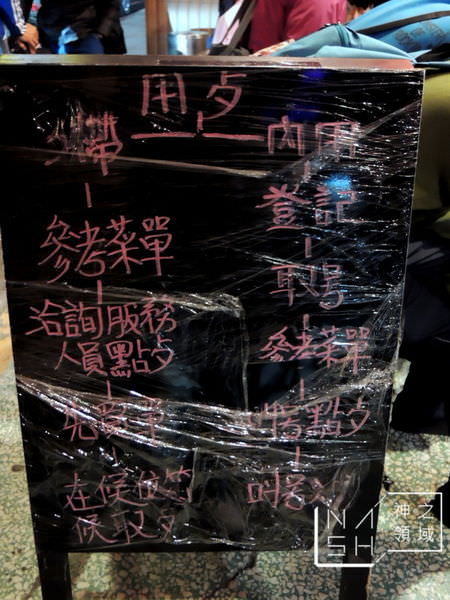 用夕
外帶
參考菜單
洽詢服務
人員點夕
先買單
在候位等
候取夕
內用
登記
取号
參考菜單
點夕
叫号
NASH
神之
領域